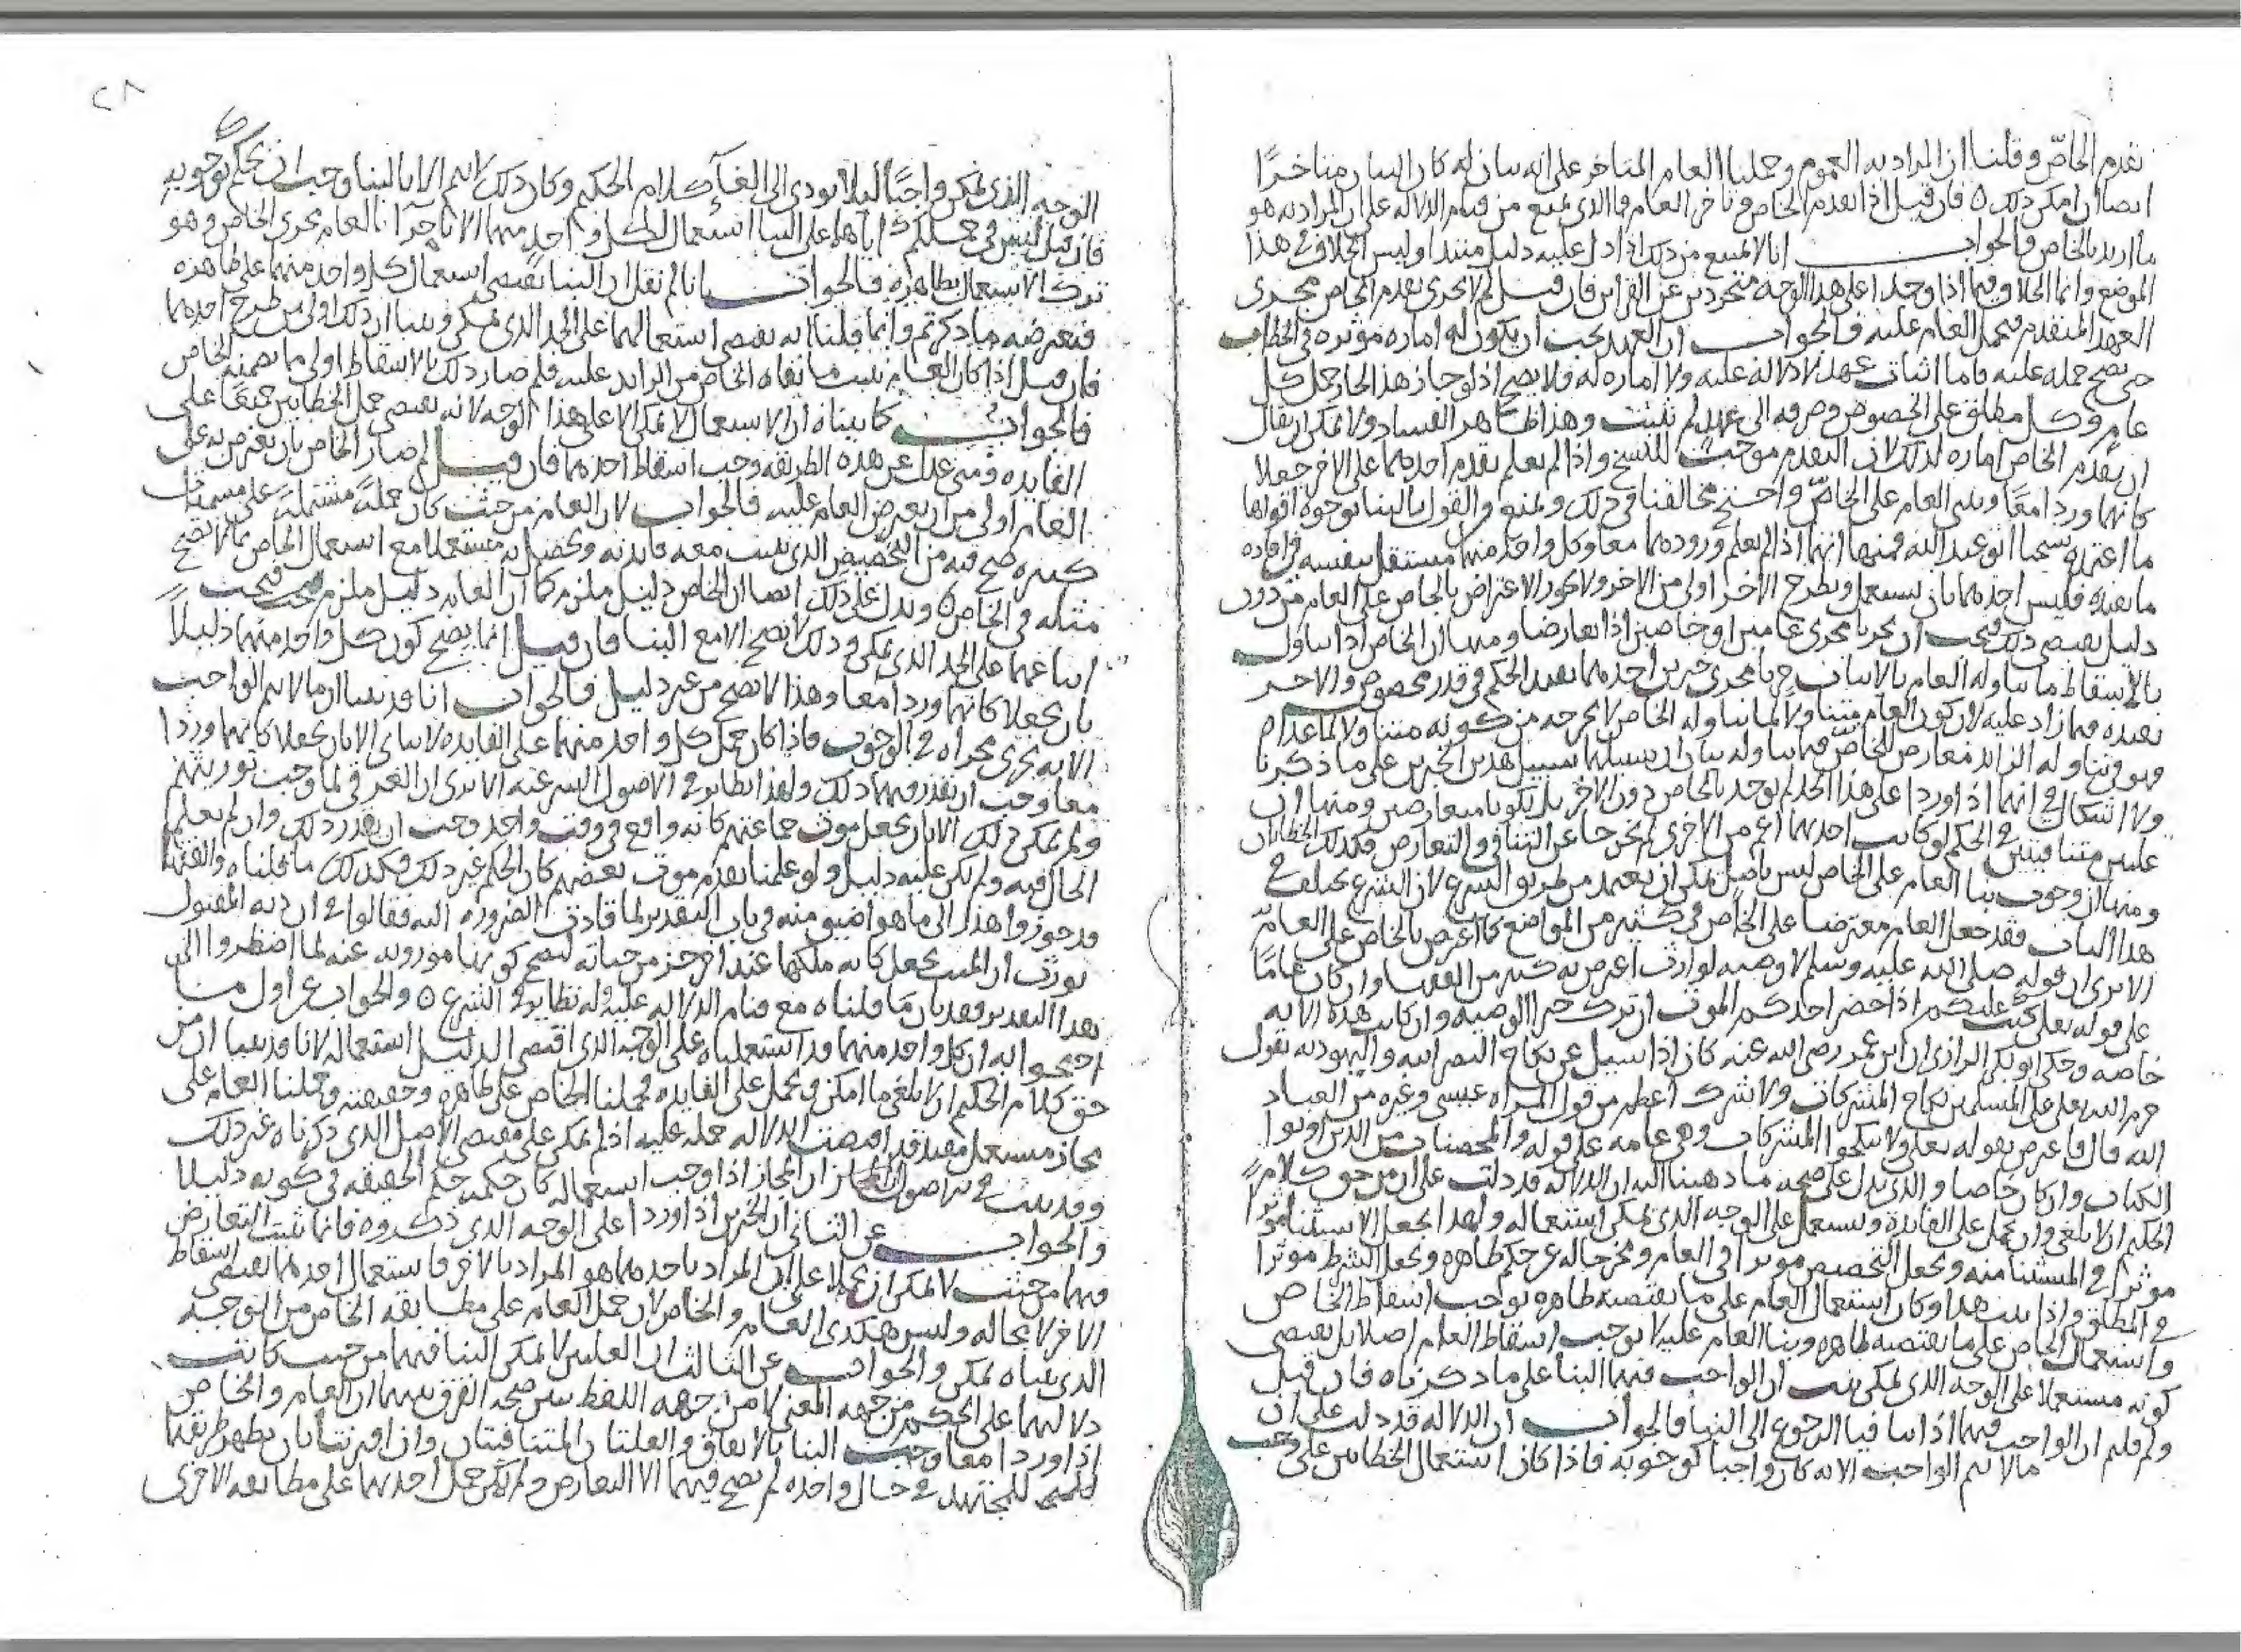 تقدم الخاصّ وقلنا ان المراد به العموم وحملنا العام المتاخر على انه بيان له كان البيان متاخرًا
ايضا ان امكن ذلك ٥ فان قيل اذا تقدم الخاص وتاخر العام فما الذى يمنع من قيام الدلالة على ان المراد به هو
ما اريد بالخاص فالجواب انا لا نمنع من ذلك اذا دل عليه دليل مبتدا وليس الخلاف فى هذا
الموضع وانما الخلاف فيما اذا وجدا على هذا الوجه متجردين عن القراين فان قيل لم لا يجرى تقدم الخاص مجرى
العهد المتقدم فيحمل العام عليه فالجواب ان العهد يجب ان يكون له اماره موثره فى الخطاب
حتى يصح حمله عليه فاما اثبات عهد لا دلالة عليه ولا اماره له فلا يصح اذ لو جاز هذا لجاز حمل كل
عام وكل مطلق على الخصوص وصرفه الى عهد لم يثبت وهذا ظاهر الفساد ولا يمكن ان يقال
ان تقدم الخاص اماره لذلك لان التقدم موجب للنسخ واذا لم يعلم تقدم احدهما على الاخر جعلا
كانهما وردا معًا وبنى العام على الخاصّ واحتج مخالفنا فى ذلك ولمنع والقول بالبنا بوجوه اقواها
ما اعتمده شيخنا ابو عبد الله فمنها انهما اذا لم يعلم ورودهما معا وكل واحد منهما مستقل بنفسه فى افاده
ما يفيده فليس احدهما بان يستعمل ويطرح الاخر اولى من الاخر ولا يجوز الاعتراض بالخاص على العام من دون
دليل يقتضى ذلك فيجب ان يجريا مجرى عامين او خاصين اذا تعارضا ومنها ان الخاص اذا تناول
بالاسقاط ما تناوله العام بالاثبات جريا مجرى خبرين احدهما يفيد الحكم فى قدر مخصوص والاخر
يفيده فيما زاد عليه لان كون العام متناولا لما تناوله الخاص لا يخرجه من كونه متناولا لما عداه
فهو فى تناوله الزايد معارض للخاص فيما تناوله
ولا اشكال فى انهما اذا وردا على هذا الحد لم يوخذ بالخاص دون الاخر بل يكونا متعارضين ومنها ان
علتين متنافيتين فى الحكم لو كانت احدهما اعم من الاخرى لم تخرجا عن التنافى والتعارض فكذلك الخطابان
ومنها ان وجوب بنا العام على الخاص ليس باصل يمكن ان يعتمد من طريق الشرع لان الشرع يختلف فى
هذا الباب فقد جعل العام معترضا على الخاص فى كثير من المواضع كما اعترض بالخاص على العام
الا ترى ان قوله صلى الله عليه وسلم لا وصيه لوارث اعترض به كثير من الفقها وان كان عامًا
على قوله تعلى كتب عليكم اذا حضر احدكم الموت ان ترك خيرا الوصيه وان كانت هذه الايه
خاصه وحكى ابو بكر الرازى ان ابن عمر رضى الله عنه كان اذا سيل عن نكاح النصرانيه واليهوديه يقول
حرم الله تعلى على المسلمين نكاح المشركات ولا شرك اعظم من قول المراه عيسى وغيره من العباد
الله قال فاعترض بقوله تعلى ولا تنكحوا المشركات وهى عامه على قوله والمحصنات من الذين اوتوا
الكتاب وان كان خاصا والذى يدل على صحه ما ذهبنا اليه ان الدلاله قد دلت على ان من حق كلام
الحكيم ان لا يلغى وان يحمل على الفايدة ويستعمل على الوجه الذى يمكن استعماله ولهذا يجعل الاستثنا موثرا
موثرا فى المستثنا منه ويجعل التخصيص موثرا فى العام ومخرجا له عن حكم ظاهره ويجعل الشرط موثرا
فى المطلق واذا ثبت هذا وكان استعمال العام على ما يقتضيه ظاهره يوجب اسقاط الخاص
واستعمال الخاص على ما يقتضيه ظاهره وبنا العام عليه لا يوجب اسقاط العام اصلا بل يقتضى
كونه مستعملا على الوجه الذى يمكن ثبت ان الواجب فيهما البنا على ما ذكرناه فان قيل
ولم قلتم ان الواجب فيهما اذا تنافيا الرجوع الى البنا فالجواب ان الدلاله قد دلت على ان
ما لا يتم الواجب الا به كان واجبا كوجوبه فاذا كان استعمال الخطابين على وجب
٢٨
الوجه الذى يمكن واجبًا ليلا يودى الى الغآ كلام الحكيم وكان ذلك لا يتم الا بالبنا وجب ان نحكم بوجوبه
فان قيل ليس فى حملكم اياهما على البنا استعمال لكل واحد منهما لان اجرا العام مجرى الخاص هو
ترك الاستعمال لظاهره فالجواب انا لم نقل ان البنا يقتضى استعمال كل واحد منهما على ظاهره
فتعترضه ما ذكرتم وانما قلنا انه يقتضى استعمالهما على الحد الذى يمكن وبينا ان ذلك اولى من طرح احدهما
فان قيل اذا كان العام يثبت ما نفاه الخاص من الزايد عليه فلم صار ذلك بالاسقاط اولى مما يضمنه الخاص
فالجواب كما بيناه ان الاستعمال لا يمكن الا على هذا الوجه لانه يقتضى حمل الخطابين جميعًا على
الفايده ومتى عدل عن هذه الطريقه وجب اسقاط احدهما فان قيل لم صار الخاص بان يعترض به على
العام اولى من ان يعترض العام عليه فالجواب لان العام من حيث كان جملةً مشتملةً على مسميات
كثيره صح فيه من التخصيص الذى يثبت معه فايدته ويحصل به مستعملا مع استعمال الخاص ما لا يصح
مثله فى الخاص ٥ ويدل على ذلك ايضا ان الخاص دليل ملزم كما ان العام دليل ملزم فيجب
اتباعهما على الحد الذى يمكن وذلك لا يصح الا مع البنا فان قيل انما يصح كون كل واحد منهما دليلاً
بان يجعلا كانهما وردا معا وهذا لا يصح من غير دليل فالجواب انا قد بينا ان ما لا يتم الواجب
الا به يجرى مجراه فى الوجوب فاذا كان حمل كل واحد منهما على الفايده لا يتاتى الا بان يجعلا كانهما وردا
معا وجب ان يقدر فيهما ذلك ولهذا نظاير فى الاصول الشرعيه الا ترى ان الغرقى لما وجب توريثهم
ولم يمكن ذلك الا بان يجعل موت جماعتهم كانه واقع فى وقت واحد وجب ان يقدر ذلك وان لم يعلم
الحال فيه ولم يكن عليه دليل ولو علمنا تقدم موت بعضهم كان الحكم غير ذلك فكذلك ما قلناه والفقها
قد جوزوا هذا الى ما هو اضيق منه فى باب التقدير لما قادت الضروره اليه فقالوا فى ان ديه المقتول
تورث ان الميت يجعل كانه ملكها عند اخر جز من حياته ليصح كونها موروثه عنه لما اضطروا الى
هذا التقدير فقد بان ما قلناه مع قيام الدلاله عليه وله نظاير فى الشرع ٥ والجواب عن اول ما
احتجوا به ان كل واحد منهما قد استعملناه على الوجه الذى اقتضى الدليل استعماله لانا قد بينا ان من
حق كلام الحكيم ان لا يلغى ما امكن ويحمل على الفايده فحملنا الخاص على ظاهره وحقيقته وجعلنا العام على
مجاز مستعمل مفيد قد اقتضت الدلاله حمله عليه اذا لم يمكن على مقتضى الاصل الذى ذكرناه غير ذلك
وقد بينت فى ان المجاز اذا وجب استعماله كان حكمه حكم الحقيقه فى كونه دليلا
والجواب عن الثانى ان الخبرين اذا وردا على الوجه الذى ذكروه فانما يثبت التعارض
فيهما من حيث لا يمكن ان يحملا على ان المراد باحدهما هو المراد بالاخر فاستعمال احدهما يقتضى اسقاط
الاخر لا محاله وليس هكذى العام والخاص لان حمل العام على مطابقه الخاص من الوجه
الذى بيناه يمكن والجواب عن الثالث ان العلتين لا يمكن البنا فيهما من حيث كانت
دلالتهما على الحكمين من جهه المعنى لا من جهه اللفظ يبين صحه الفرق بينهما ان العام والخاص
اذا وردا معا وجب البنا بالاتفاق والعلتان المتنافيتان وان اقترنتا بان يظهر طريقهما
للمجتهد فى حال واحده لم يصح فيهما الا التعارض ولم يكن حمل احدهما على مطابقه الاخرى